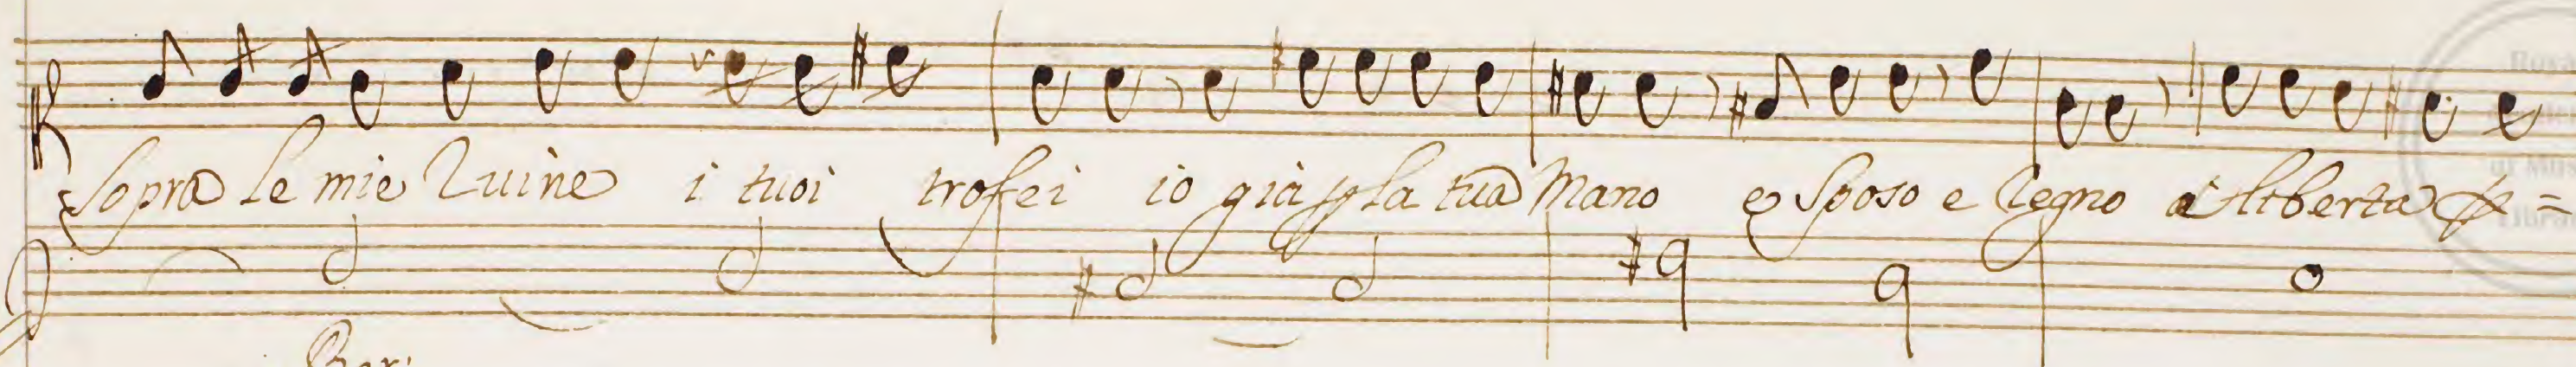 Sopra le mie Ruine i tuoi trofei io già p la tua Mano e Sposo e Regno a liberta
Bar: